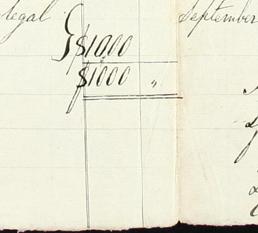 legal
September
$1000
$1000 "